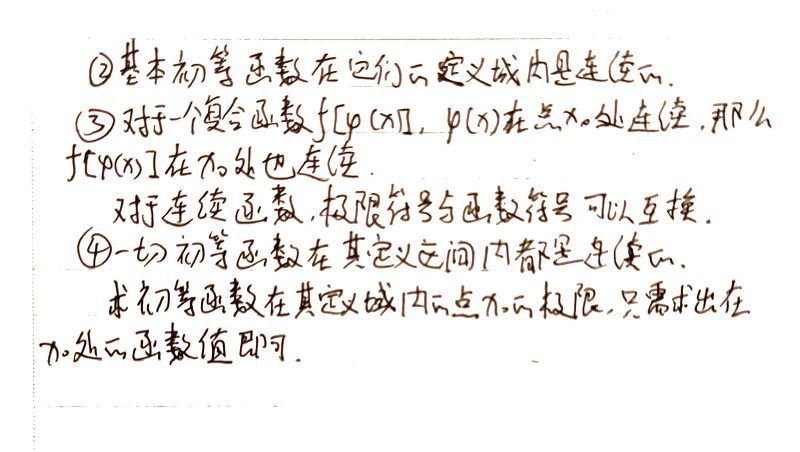 ②基本初等函数在它们的定义域内是连续的.
③对于一个复合函数f[φ(x)], φ(x)在点x₀处连续,那么
f[φ(x)]在x₀处也连续.
对于连续函数,极限符号与函数符号可以互换.
④一切初等函数在其定义区间内都是连续的.
求初等函数在其定义域内的点x₀的极限,只需求出在
x₀处的函数值即可.